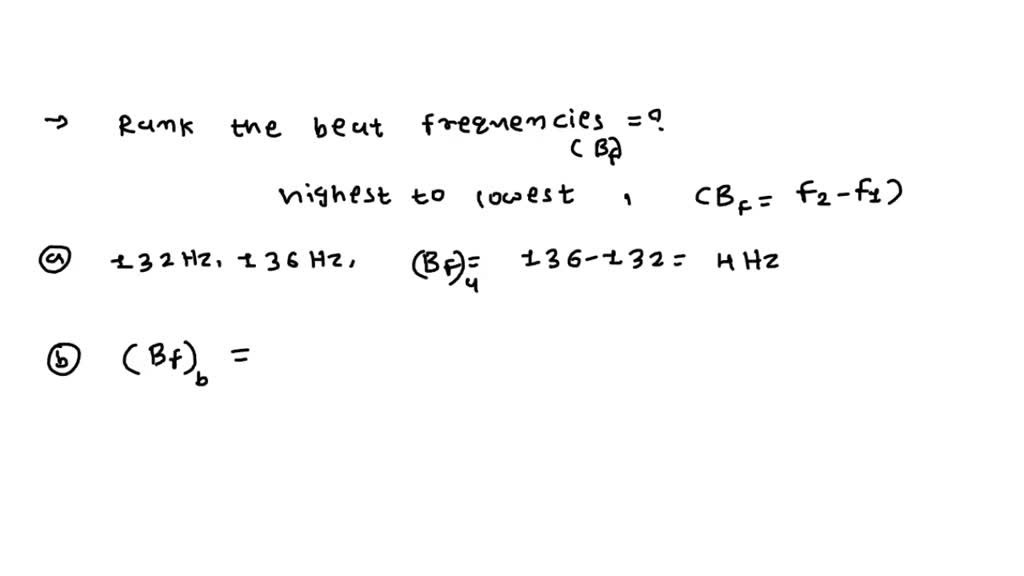 → Rank the beat frequencies = ?
(Bf)
highest to lowest , (BF = F2 - f1)
(a) 132 Hz, 136 Hz, (Bf)4 = 136-132 = 4 Hz
(b) (Bf)b =